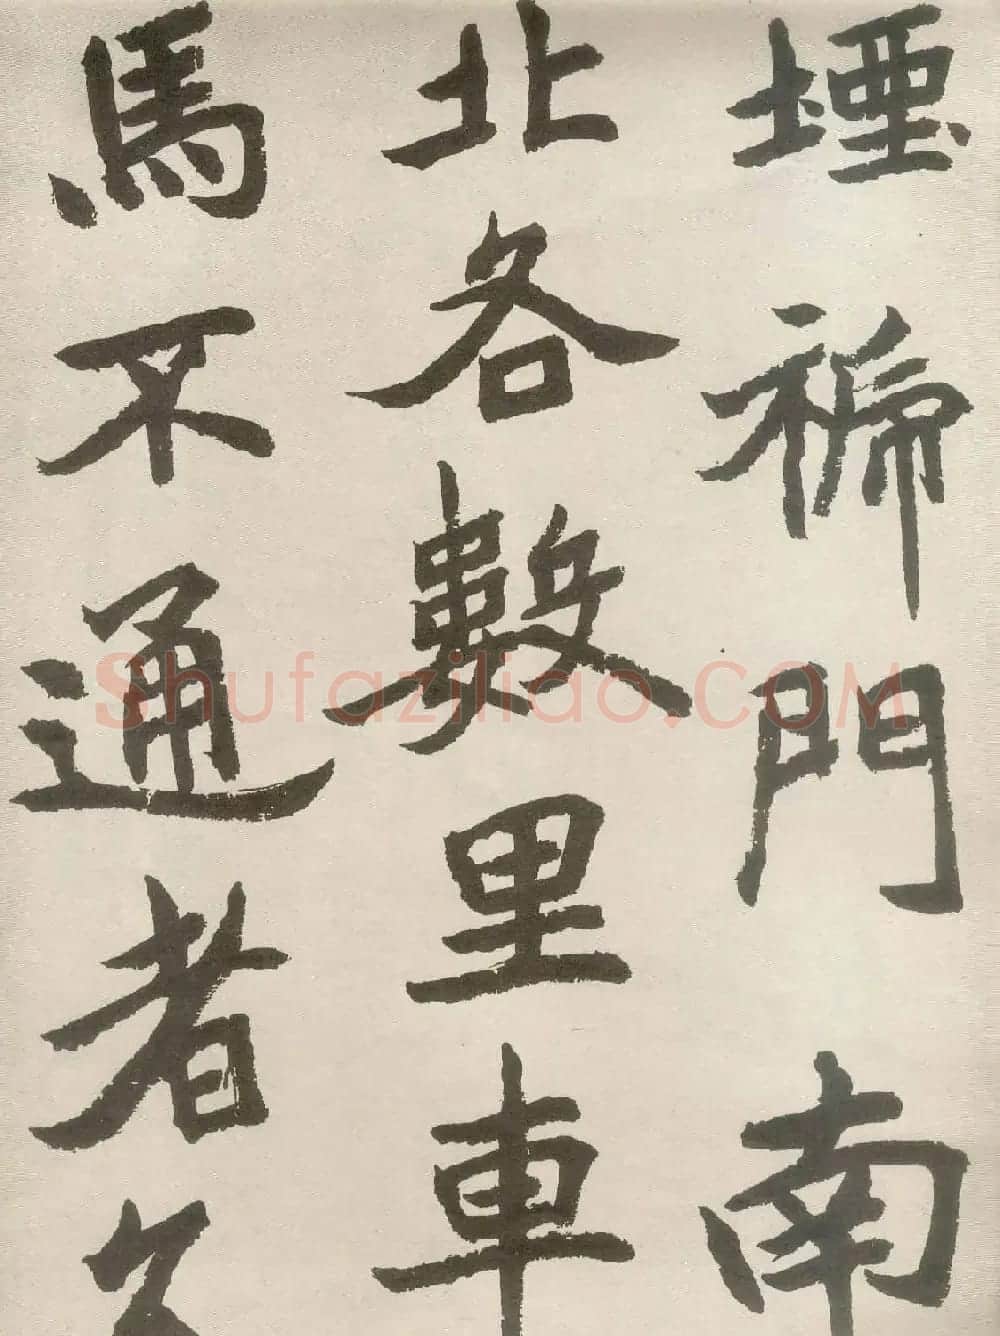 堙門南
北各數里車
馬不通者
Shufaziliao.COM